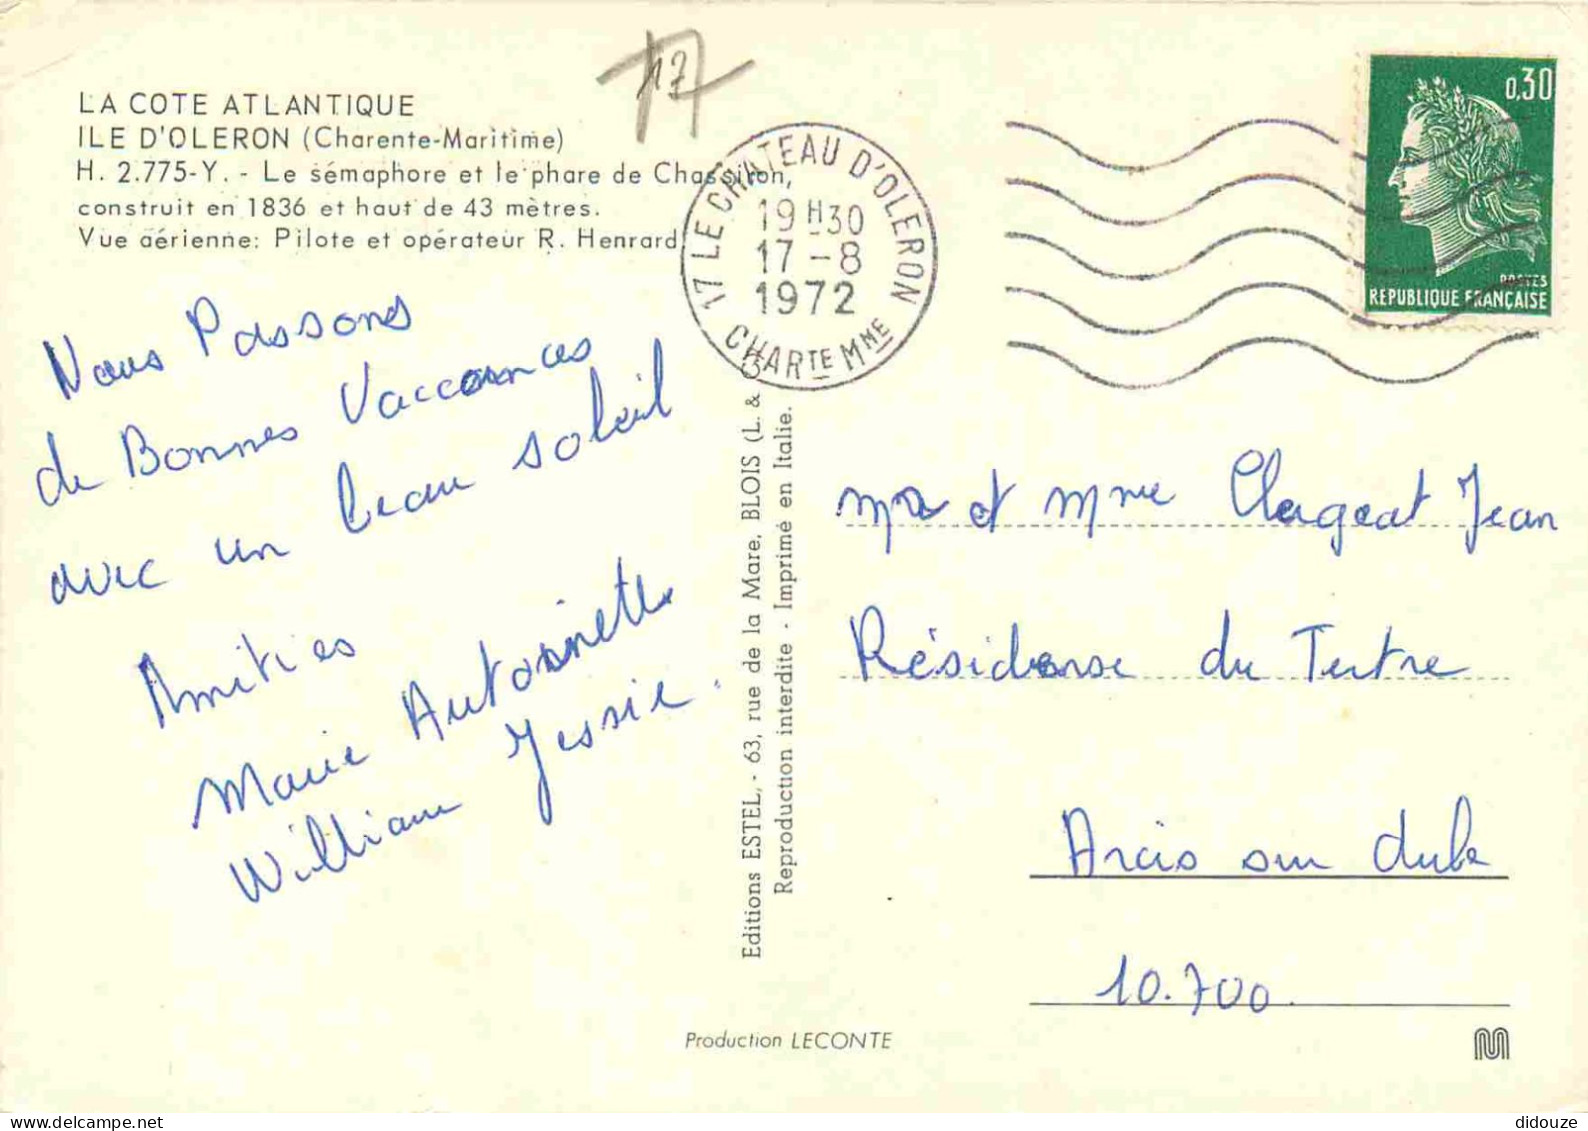 17
LA COTE ATLANTIQUE
ILE D'OLERON (Charente-Maritime)
H. 2.775-Y. - Le sémaphore et le phare de Chassiron,
construit en 1836 et haut de 43 mètres.
Vue aérienne: Pilote et opérateur R. Henrard
17 LE CHATEAU D'OLERON
19H30
17-8
1972
CHARTE MME
0,30
POSTES
REPUBLIQUE FRANÇAISE
Nous Passons
de Bonnes Vaccances
avec un beau soleil
Amities
Marie Antoinette
William Jessie.
Editions ESTEL, - 63, rue de la Mare, BLOIS (L. & C
Reproduction interdite - Imprimé en Italie.
Mr et Mme Clergeat Jean
Résidense du Tertre
Arcis sur dube
10.700
Production LECONTE
didouze